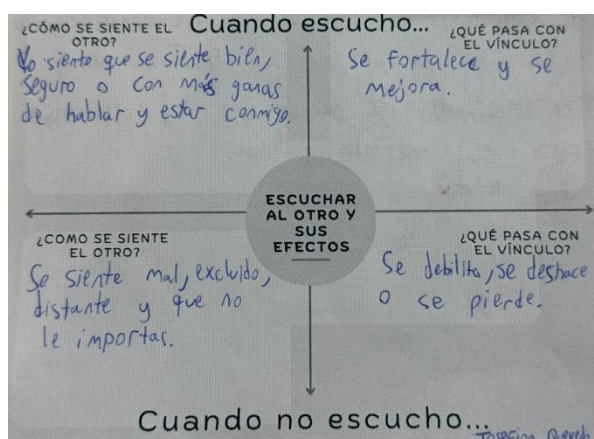 Cuando escucho...
¿CÓMO SE SIENTE EL
OTRO?
Yo siento que se siente bien,
seguro o con más ganas
de hablar y estar conmigo.
¿QUÉ PASA CON
EL VÍNCULO?
Se fortalece y se
mejora.
ESCUCHAR
AL OTRO Y
SUS
EFECTOS
¿COMO SE SIENTE
EL OTRO?
Se siente mal, excluido,
distante y que no
le importas.
¿QUÉ PASA CON
EL VÍNCULO?
Se debilita, se deshace
o se pierde.
Cuando no escucho...
Josefina Quevedo